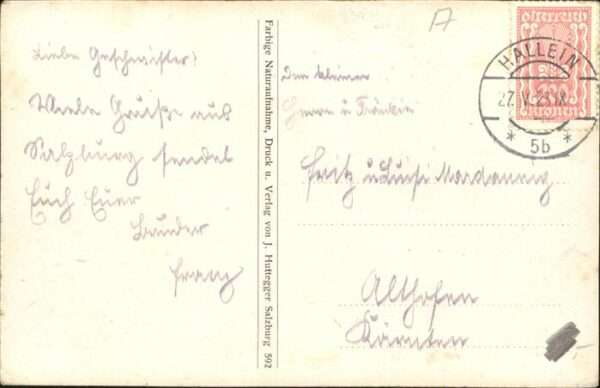 Liebe Geschwister!
Viele Grüße aus
Salzburg sendet
Euch Euer
Bruder
Franz
Farbige Naturaufnahme, Druck u. Verlag von J. Huttegger Salzburg 592
Den kleinen
Herrn u Fräulein
Fritz u Luise
Althofen
Kärnten
österreich
KRONEN
HALLEIN
27. V. 23
* 5b *